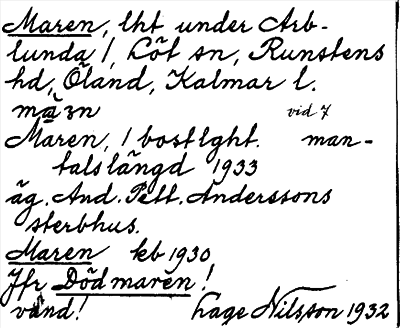 Maren, lht under Arb-
lunda 1, Löt sn, Runstens
hd, Öland, Kalmar l.
mǡꝛn vid 7
Maren, 1 bostlght. man-
talslängd 1933
äg. And. Pett. Anderssons
sterbhus.
Maren kb 1930
Jfr Dödmaren!
vånd! Lage Nilsson 1932